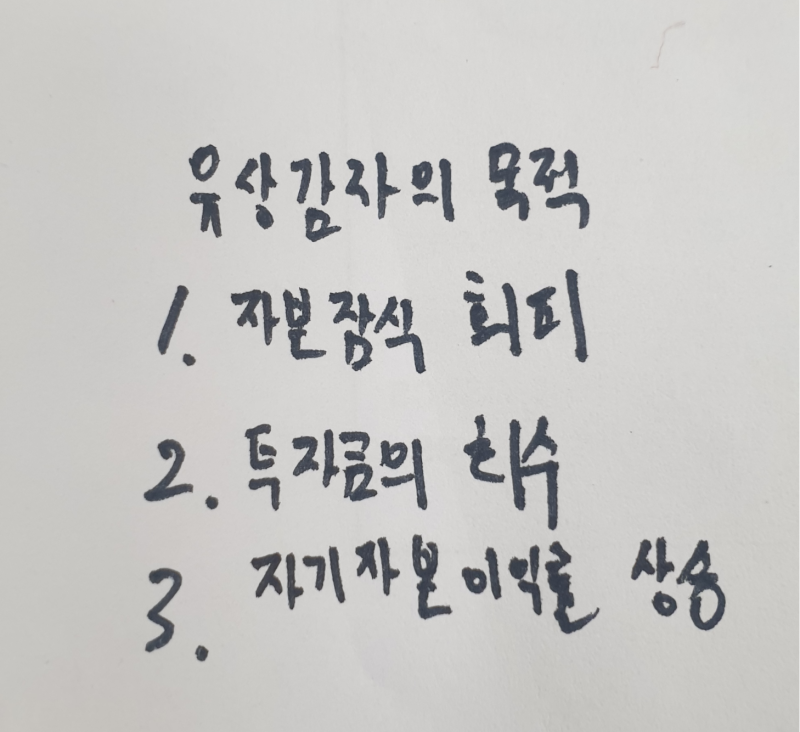 유상감자의 목적
1. 자본잠식 회피
2. 투자금의 회수
3. 자기자본이익률 상승